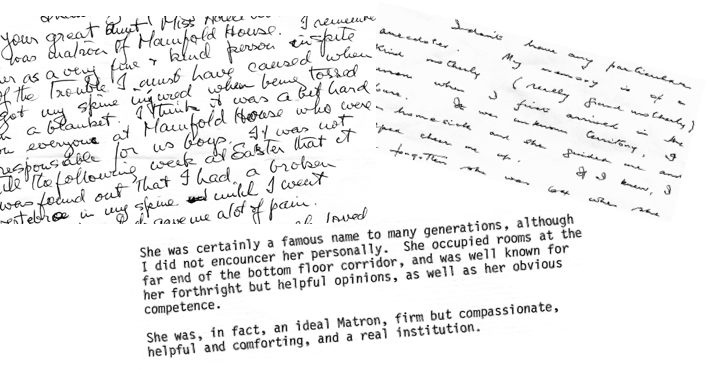 your great Aunt! Miss
was matron of Manifold House. I remember
as a very fine & kind person inspite
of the trouble I must have caused when
got my spine injured when being tossed
in a blanket. I think it was a bit hard
on everyone at Manifold House who were
responsable for us boys. It was not
till the following week at Easter that it
was found out that I had a broken
in my spine until I went
gave me a lot of pain.
loved
I don't have any particular
anecdotes. My memory is of a
kind motherly (really grand motherly)
when I first arrived in the
unknown territory, I
homesick and she guided me and
cheer me up. If I knew, I
forgotten she was when she
She was certainly a famous name to many generations, although
I did not encouncer her personally. She occupied rooms at the
far end of the bottom floor corridor, and was well known for
her forthright but helpful opinions, as well as her obvious
competence.
She was, in fact, an ideal Matron, firm but compassionate,
helpful and comforting, and a real institution.